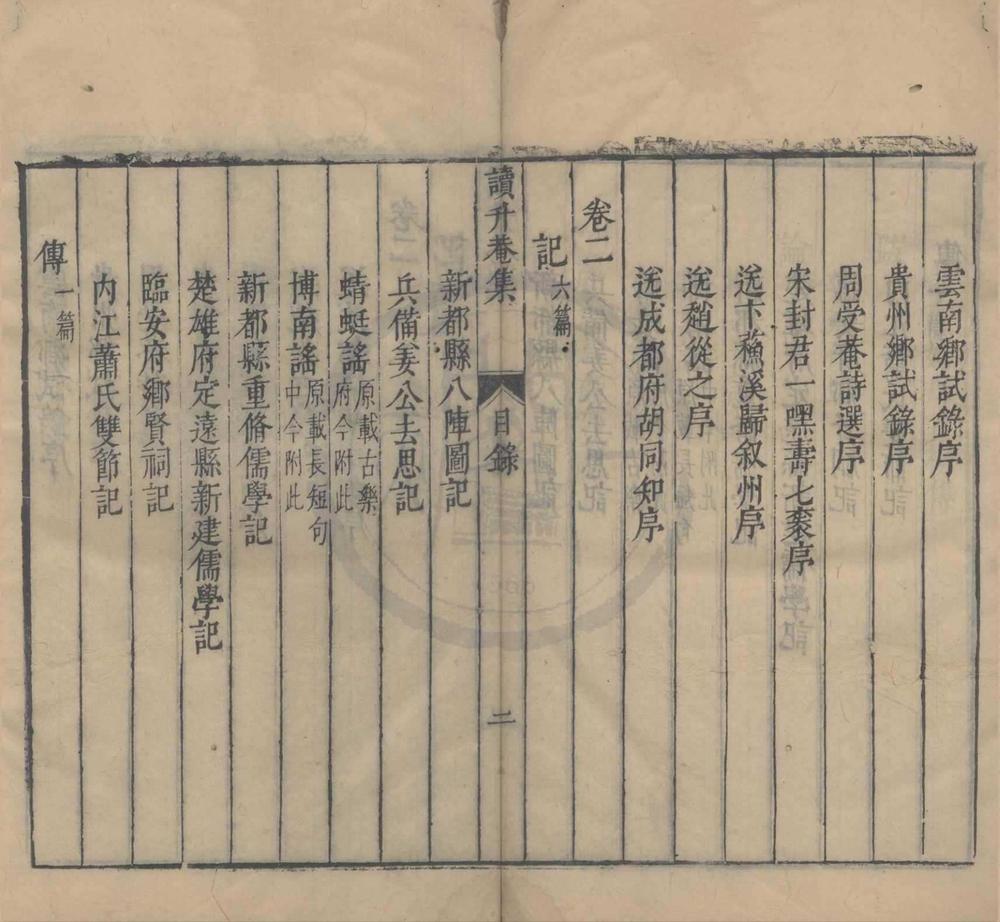 雲南鄉試錄序
貴州鄉試錄序
周受菴詩選序
宋封君一嘿壽七袠序
送卞蘓溪歸叙州序
送趙從之序
送成都府胡同知序
卷二
記六篇
讀升菴集 目錄 二
新都縣八陣圖記
兵備姜公去思記
蜻蜓謠原載古樂府今附此
博南謠原載長短句中今附此
新都縣重脩儒學記
楚雄府定遠縣新建儒學記
臨安府鄉賢祠記
內江蕭氏雙節記
傳一篇